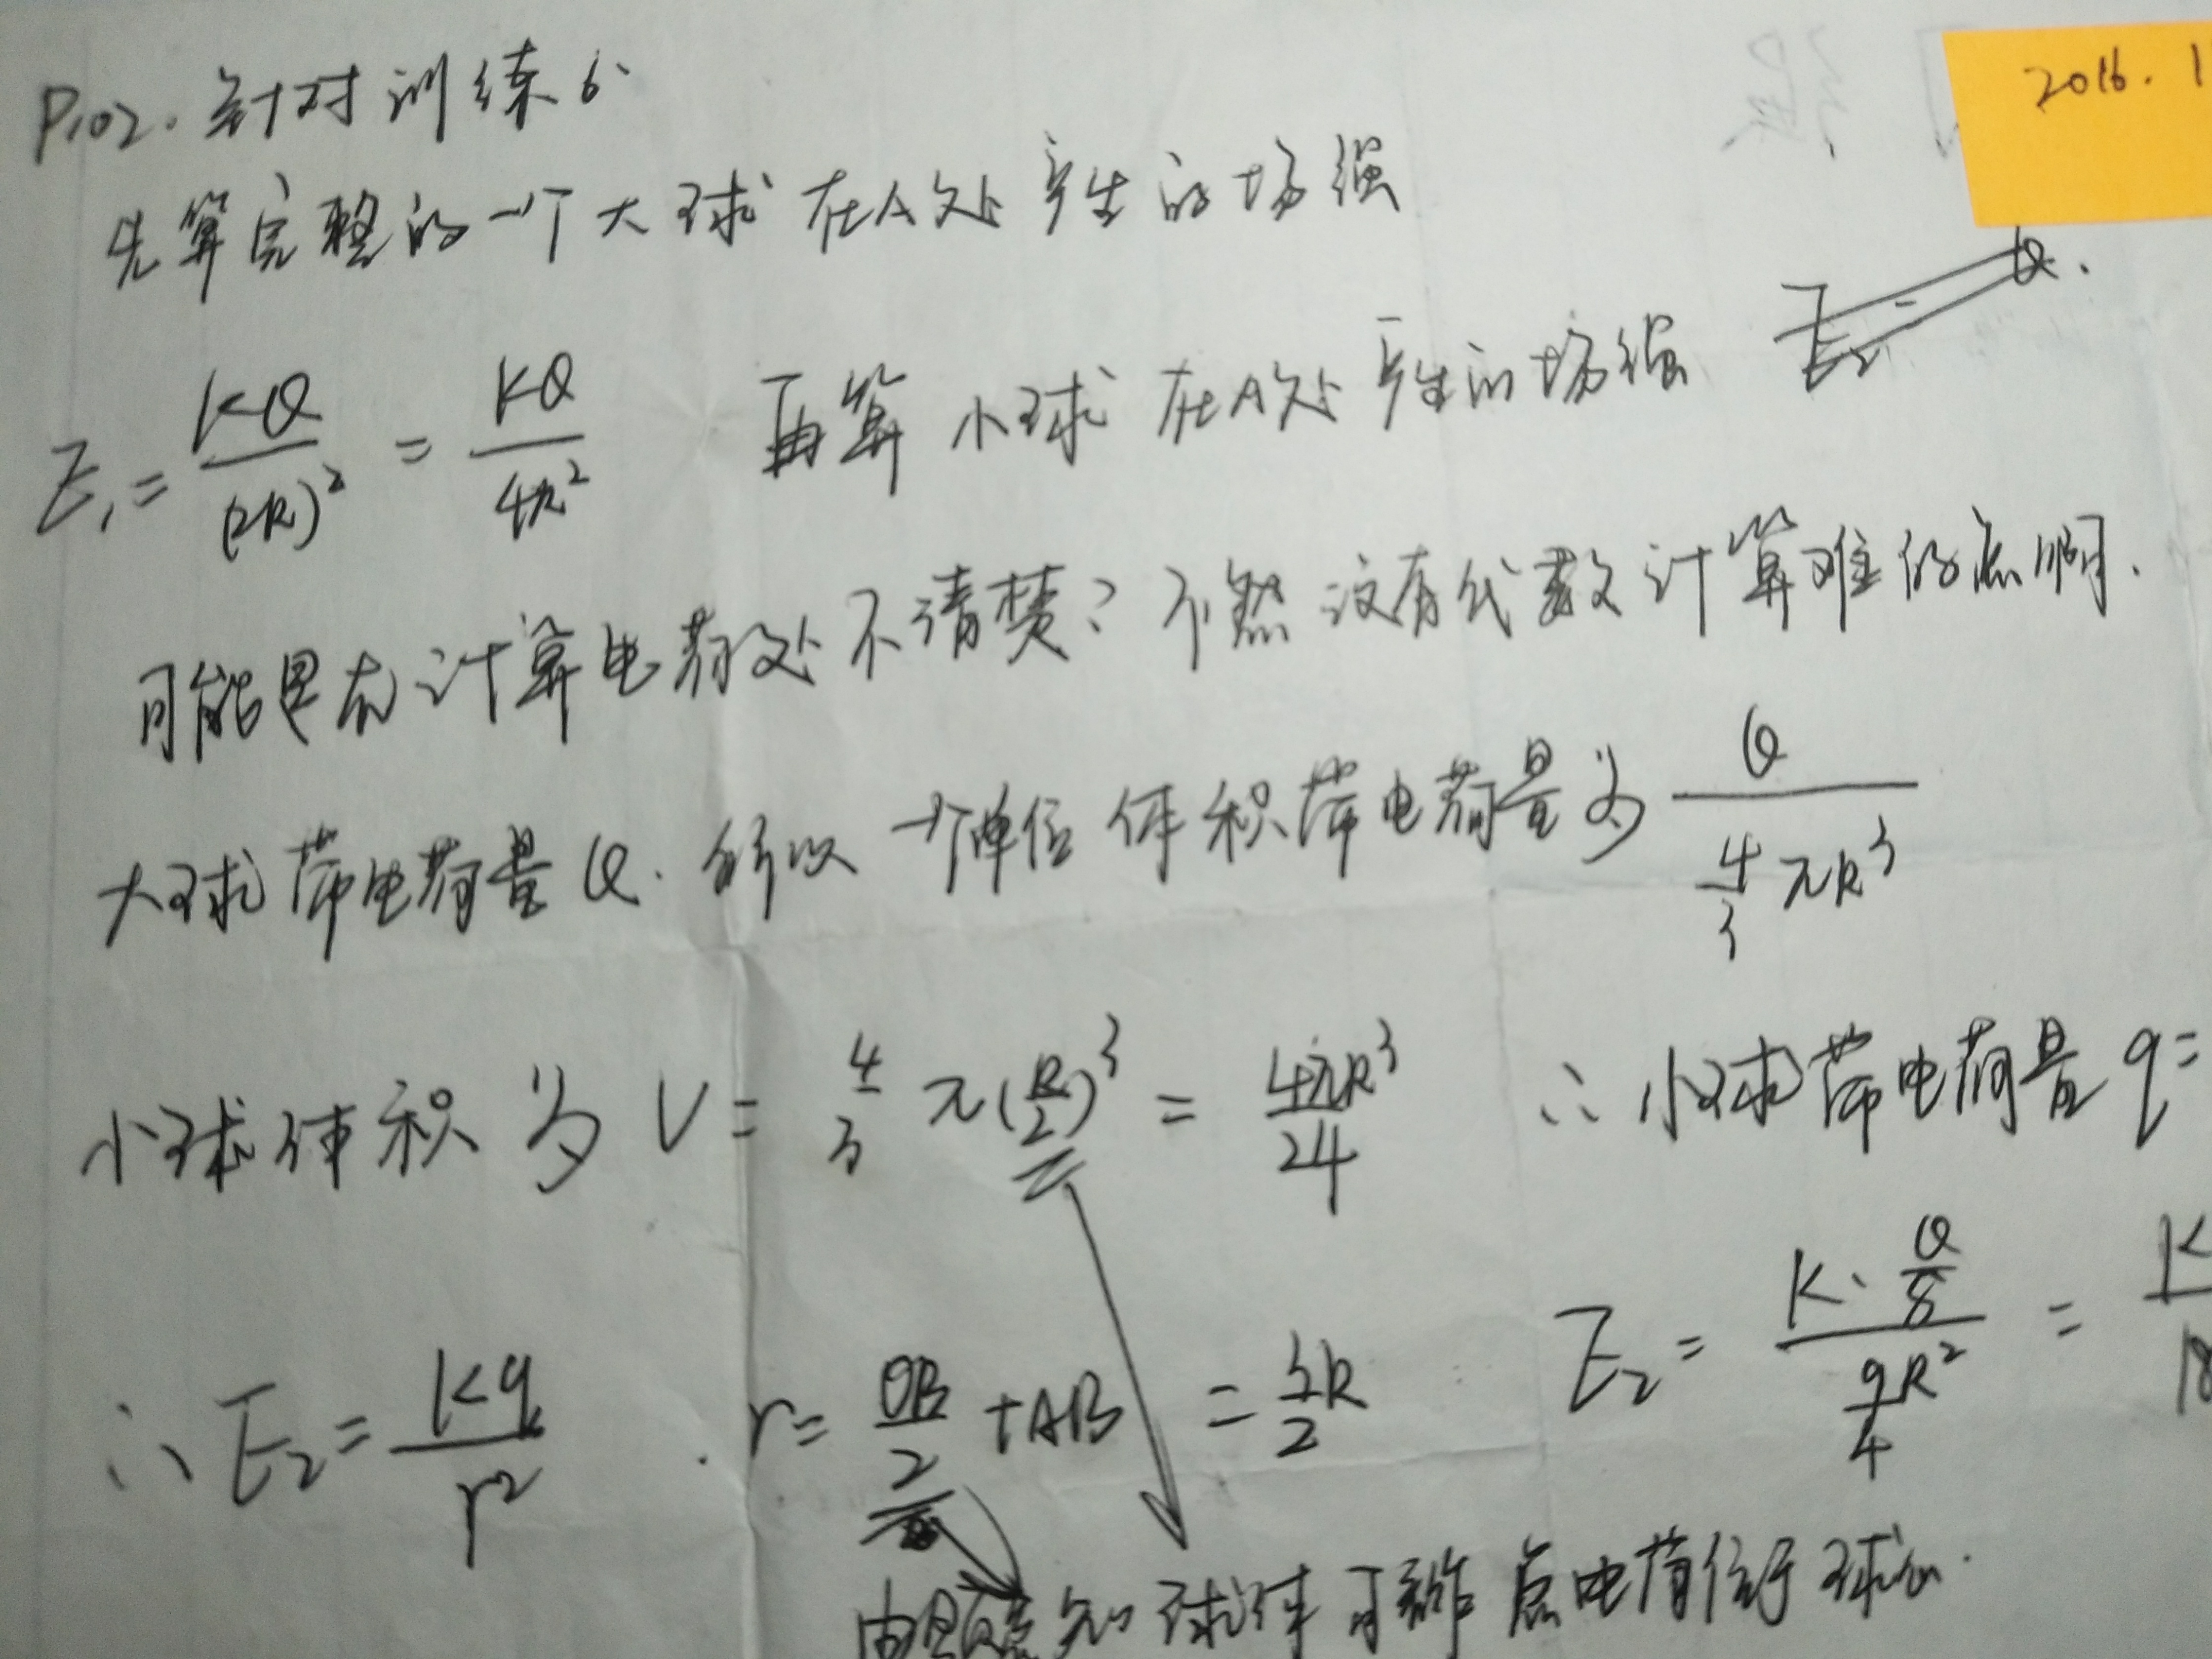 2016.1
P102.针对训练6.
先算完整的一个大球在A处产生的场强
E₁=KQ/(2R)²=KQ/4R² 再算小球在A处产生的场强 E₂=Q.
可能是在计算电荷处不清楚?不然没有代数计算难的点啊.
大球带电荷量Q.所以一个单位体积带电荷量为Q/(4/3πR³)
小球体积为V=4/3π(R/2)³=4πR³/24 ∴小球带电荷量q=
∴E₂=Kq/r² . r=OB/2+AB=3/2R E₂=K·Q/8/(9/4R²)=K/18
由题意知球体可看作点电荷位于球心.